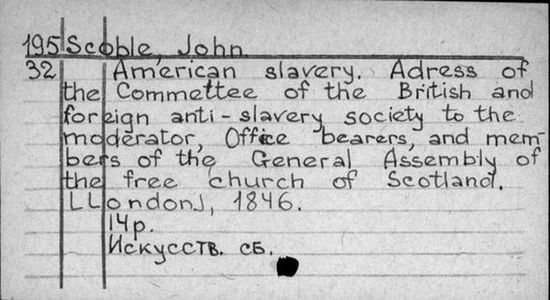 195 Scoble, John
32 American slavery. Adress of
the Commettee of the British and
foreign anti-slavery society to the
moderator, Office bearers, and mem-
bers of the General Assembly of
the free church of Scotland.
[London], 1846.
14p.
Искусств. сб.